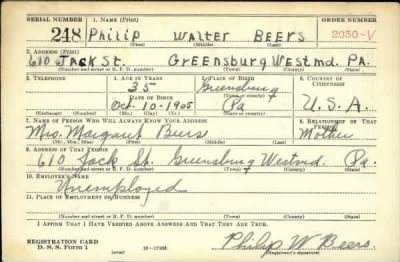 SERIAL NUMBER 1. NAME (Print) ORDER NUMBER
248 Philip Walter BEERS 2030-V
(First) (Middle) (Last)
2. ADDRESS (Print)
610 JACK St. Greensburg Westmd. PA.
(Number and street or R. F. D. number) (Town) (County) (State)
3. TELEPHONE 4. AGE IN YEARS 5. PLACE OF BIRTH 6. COUNTRY OF CITIZENSHIP
35 Greensburg
DATE OF BIRTH (Town or county)
Oct. 10-1905 Pa U.S.A.
(Mo.) (Day) (Yr.) (State or country)
7. NAME OF PERSON WHO WILL ALWAYS KNOW YOUR ADDRESS 8. RELATIONSHIP OF THAT PERSON
Mrs. Margaret Beers Mother
(Mr., Mrs., Miss) (First) (Middle) (Last)
9. ADDRESS OF THAT PERSON
610 Jack St. Greensburg Westmd. Pa.
(Number and street or R. F. D. number) (Town) (County) (State)
10. EMPLOYER'S NAME
Unemployed
11. PLACE OF EMPLOYMENT OR BUSINESS
(Number and street or R. F. D. number) (Town) (County) (State)
I AFFIRM THAT I HAVE VERIFIED ABOVE ANSWERS AND THAT THEY ARE TRUE.
REGISTRATION CARD
D. S. S. Form 1 (over) 16-17105 Philip W Beers
(Registrant's signature)